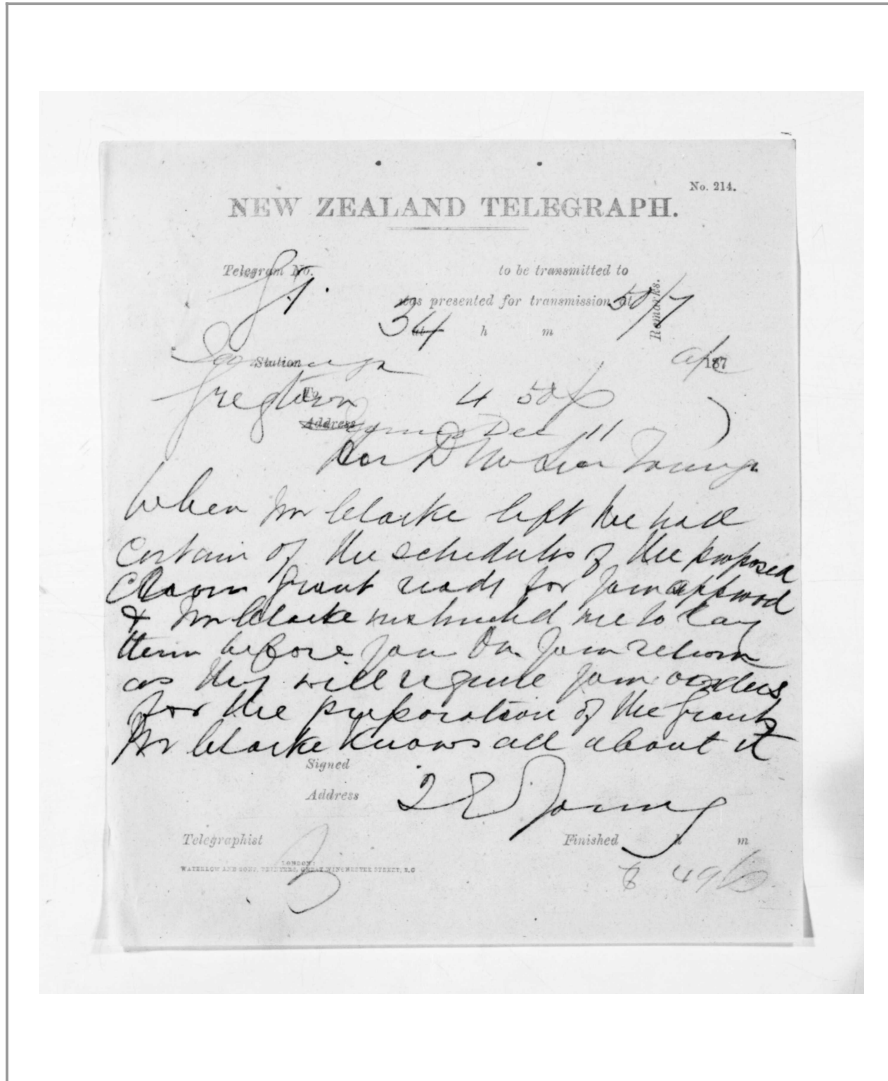 No. 214.
NEW ZEALAND TELEGRAPH.
Telegram No. to be transmitted to
was presented for transmission at 50/7
34 h m
Remarks.
Station 187
To 4 50
Address Dec 11
Hon D McLean
When Mr Clarke left he had
certain of the schedules of the proposed
Crown grant ready for your approval
& Mr Clarke instructed me to lay
them before you on your return
as they will require your orders
for the preparation of the grants
Mr Clarke knows all about it
Signed
Address T E Young
Telegraphist Finished h m
LONDON:
WATERLOW AND SONS, PRINTERS, GREAT WINCHESTER STREET, E.C
49